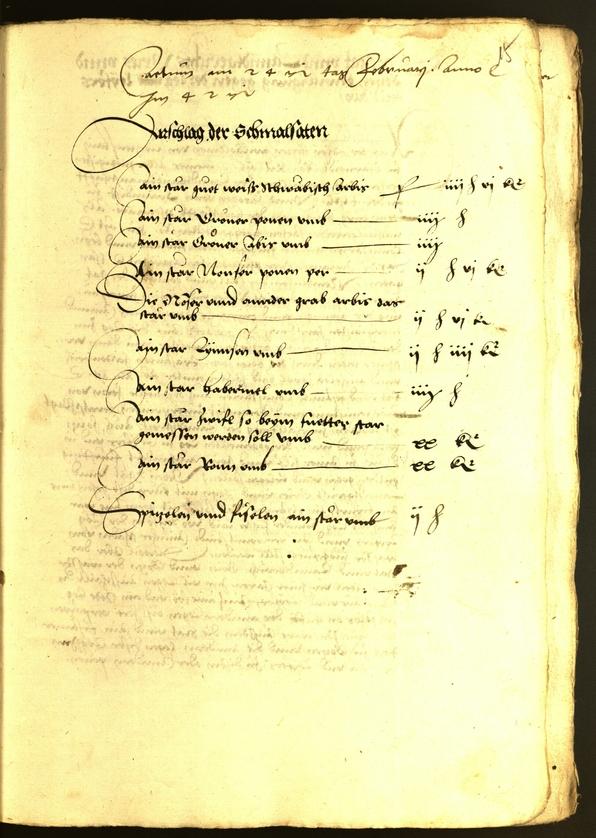 15
Actum am 24 tag Februarij Anno
Im 42
Anschlag der Schmalsaten
Ain star guet weiss schwäbisch arbis f iiij h vj kr
Ain star Gröner ponen umb iiij h
Ain star Gröner Abis umb iiij
Ain star Nonser ponen per ij h vj kr
Die Nonser unnd annder grab arbis das
star umb ij h vj kr
Ain star Lynnsen umb ij h iiij kr
Ain star habermel umb iiij h
Ain star zwifl so beym fuetter star
gemessen werden soll umb xx kr
Ain star Ruen umb xx kr
unnd fisolen ain star umb ij h